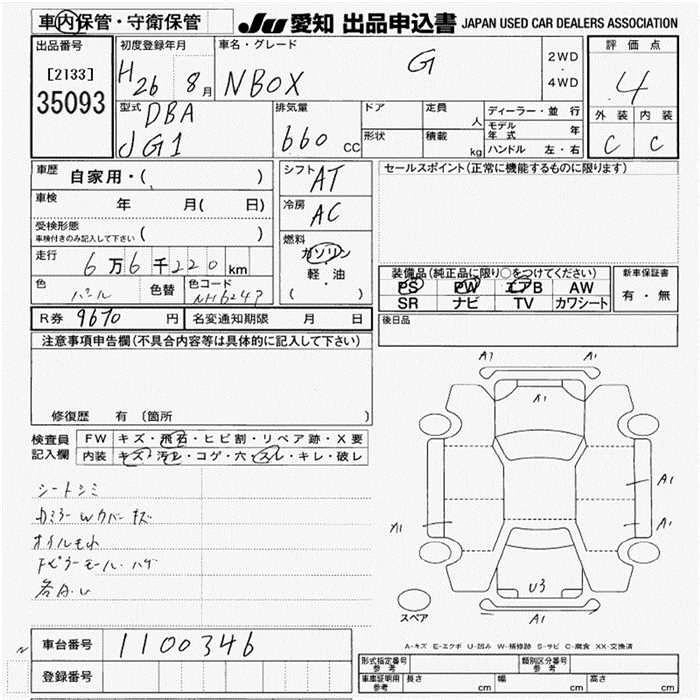 車内保管・守衛保管 JU 愛知 出品申込書 JAPAN USED CAR DEALERS ASSOCIATION
出品番号 初度登録年月 車名・グレード 評価点
[2133] 35093 H26 8月 NBOX G 2WD・4WD 4
型式 DBA JG1 排気量 660 CC ドア 定員 人 ディーラー・並行 外装 内装
形状 積載 kg モデル年式 年 C C
ハンドル 左・右
車歴 自家用・( ) シフト AT セールスポイント(正常に機能するものに限ります)
車検 年 月( 日) 冷房 AC
受検形態 車検付きのみ記入して下さい ( )
燃料 ガソリン 軽・油 ( )
走行 6万6千220km
装備品(純正品に限り○をつけてください) 新車保証書
色 パール 色替 色コード PS PW エアB AW 有・無
SR ナビ TV カワシート
R券 9670円 名変通知期限 月 日 後日品
注意事項申告欄(不具合内容等は具体的に記入して下さい)
A1
A1
修復歴 有 (箇所
検査員 FW キズ・飛石・ヒビ割・リペア跡・X要
記入欄 内装 キズ・汚レ・コゲ・穴・スレ・キレ・破レ
シートシミ
A1
A1 A1
オイルモレ
U3
スペア A1
A-キズ E-エクボ U-凹み W-補修跡 S-サビ C-腐食 XX-交換済
車台番号 1100346
形式指定番号 参考 類別区分番号 参考
登録番号 車庫証明用 参考 長さ cm 幅 cm 高さ cm